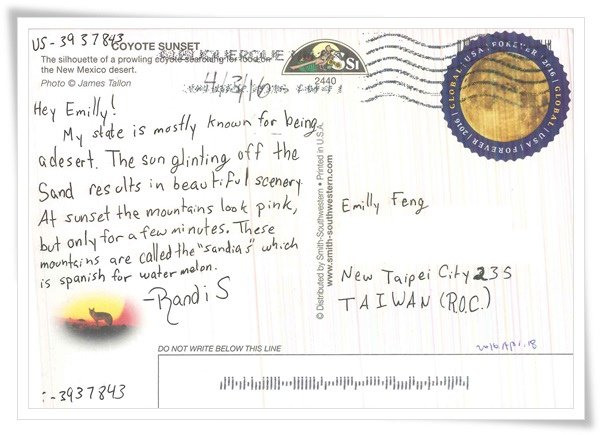 US-3937843
COYOTE SUNSET
The silhouette of a prowling coyote searching for food on
the New Mexico desert.
Photo © James Tallon
4/3/16
2440
GLOBAL | USA | FOREVER | 2016 | GLOBAL | USA | FOREVER | 2016
Hey Emilly!
My state is mostly known for being
a desert. The sun glinting off the
Sand results in beautiful scenery
At sunset the mountains look pink,
but only for a few minutes. These
mountains are called the "sandias" which
is spanish for water melon.
-Randi S
© Distributed by Smith-Southwestern • Printed in U.S.A.
www.smith-southwestern.com
Emilly Feng
New Taipei City 235
TAIWAN (R.O.C.)
DO NOT WRITE BELOW THIS LINE
2016 Apr. 18
-3937843